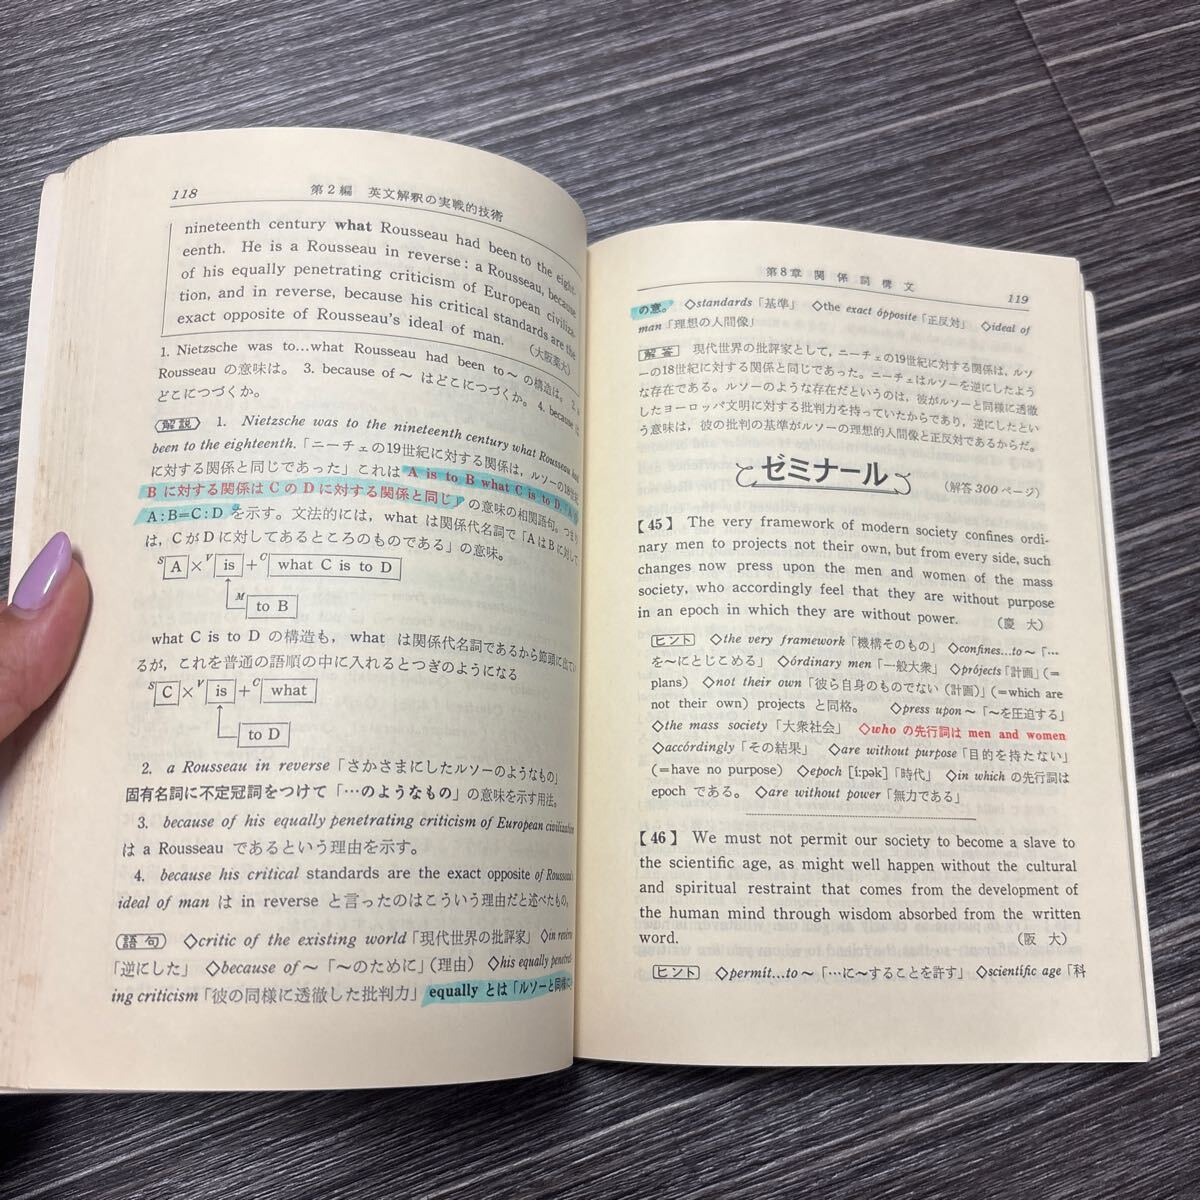 118
第2編 英文解釈の実戦的技術
nineteenth century what Rousseau had been to the eight-
eenth. He is a Rousseau in reverse: a Rousseau, because
of his equally penetrating criticism of European civiliza-
tion, and in reverse, because his critical standards are the
exact opposite of Rousseau's ideal of man. (大阪薬大)
1. Nietzsche was to…what Rousseau had been to~の構造は。 2. a
Rousseau の意味は。 3. because of~ はどこにつづくか。 4. because は
どこにつづくか。
解説 1. Nietzsche was to the nineteenth century what Rousseau had
been to the eighteenth.「ニーチェの19世紀に対する関係は,ルソーの18世紀
に対する関係と同じであった」これは A is to B what C is to D.「A の
B に対する関係は C の D に対する関係と同じ」の意味の相関語句。つまり
A:B=C:D を示す。文法的には, what は関係代名詞で「AはBに対して
は, C が D に対してあるところのものである」の意味。
S A × V is + C what C is to D
M to B
what C is to D の構造も, what は関係代名詞であるから節頭に出てい
るが,これを普通の語順の中に入れるとつぎのようになる
S C × V is + C what
to D
2. a Rousseau in reverse「さかさまにしたルソーのようなもの」
固有名詞に不定冠詞をつけて「…のようなもの」の意味を示す用法。
3. because of his equally penetrating criticism of European civilization
は a Rousseau であるという理由を示す。
4. because his critical standards are the exact opposite of Rousseau's
ideal of man は in reverse と言ったのはこういう理由だと述べたもの。
語句 ◇critic of the existing world「現代世界の批評家」 ◇in reverse
「逆にした」 ◇because of~「~のために」(理由) ◇his equally penetrat-
ing criticism「彼の同様に透徹した批判力」 equally とは「ルソーと同様に」
第8章 関係詞構文
119
の意。 ◇standards「基準」 ◇the exact ópposite「正反対」 ◇ideal of
man「理想の人間像」
解答 現代世界の批評家として,ニーチェの19世紀に対する関係は,ルソ
ーの18世紀に対する関係と同じであった。ニーチェはルソーを逆にしたよう
な存在である。ルソーのような存在だというのは,彼がルソーと同様に透徹
したヨーロッパ文明に対する批判力を持っていたからであり,逆にしたとい
う意味は,彼の批判の基準がルソーの理想的人間像と正反対であるからだ。
ゼミナール
(解答300ページ)
【45】 The very framework of modern society confines ordi-
nary men to projects not their own, but from every side, such
changes now press upon the men and women of the mass
society, who accordingly feel that they are without purpose
in an epoch in which they are without power. (慶 大)
ヒント ◇the very framework「機構そのもの」 ◇confines…to~「…
を~にとじこめる」 ◇órdinary men「一般大衆」 ◇prójects「計画」(=
plans) ◇not their own「彼ら自身のものでない(計画)」(=which are
not their own) projects と同格。 ◇press upon~「~を圧迫する」
◇the mass society「大衆社会」 ◇who の先行詞は men and women
◇accórdingly「その結果」 ◇are without purpose「目的を持たない」
(=have no purpose) ◇epoch [íːpək]「時代」 ◇in which の先行詞は
epoch である。 ◇are without power「無力である」
【46】 We must not permit our society to become a slave to
the scientific age, as might well happen without the cultural
and spiritual restraint that comes from the development of
the human mind through wisdom absorbed from the written
word. (阪 大)
ヒント ◇permít…to~「…に~することを許す」 ◇scientífic age「科